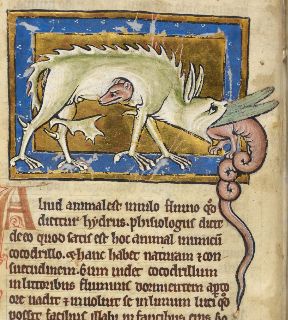 Aliud animal est in nilo flumine qd
dicitur hydrus. phisiologus dicit
de eo quod satis est hoc animal inimicū
cocodrillo. & hanc habet naturam & con
suetudinem. Cum uidet cocodrillum
in litoribus fluminis dormientem
ore uadit & inuoluit se in limum luti q̊
possit facilius illabi in faucibus